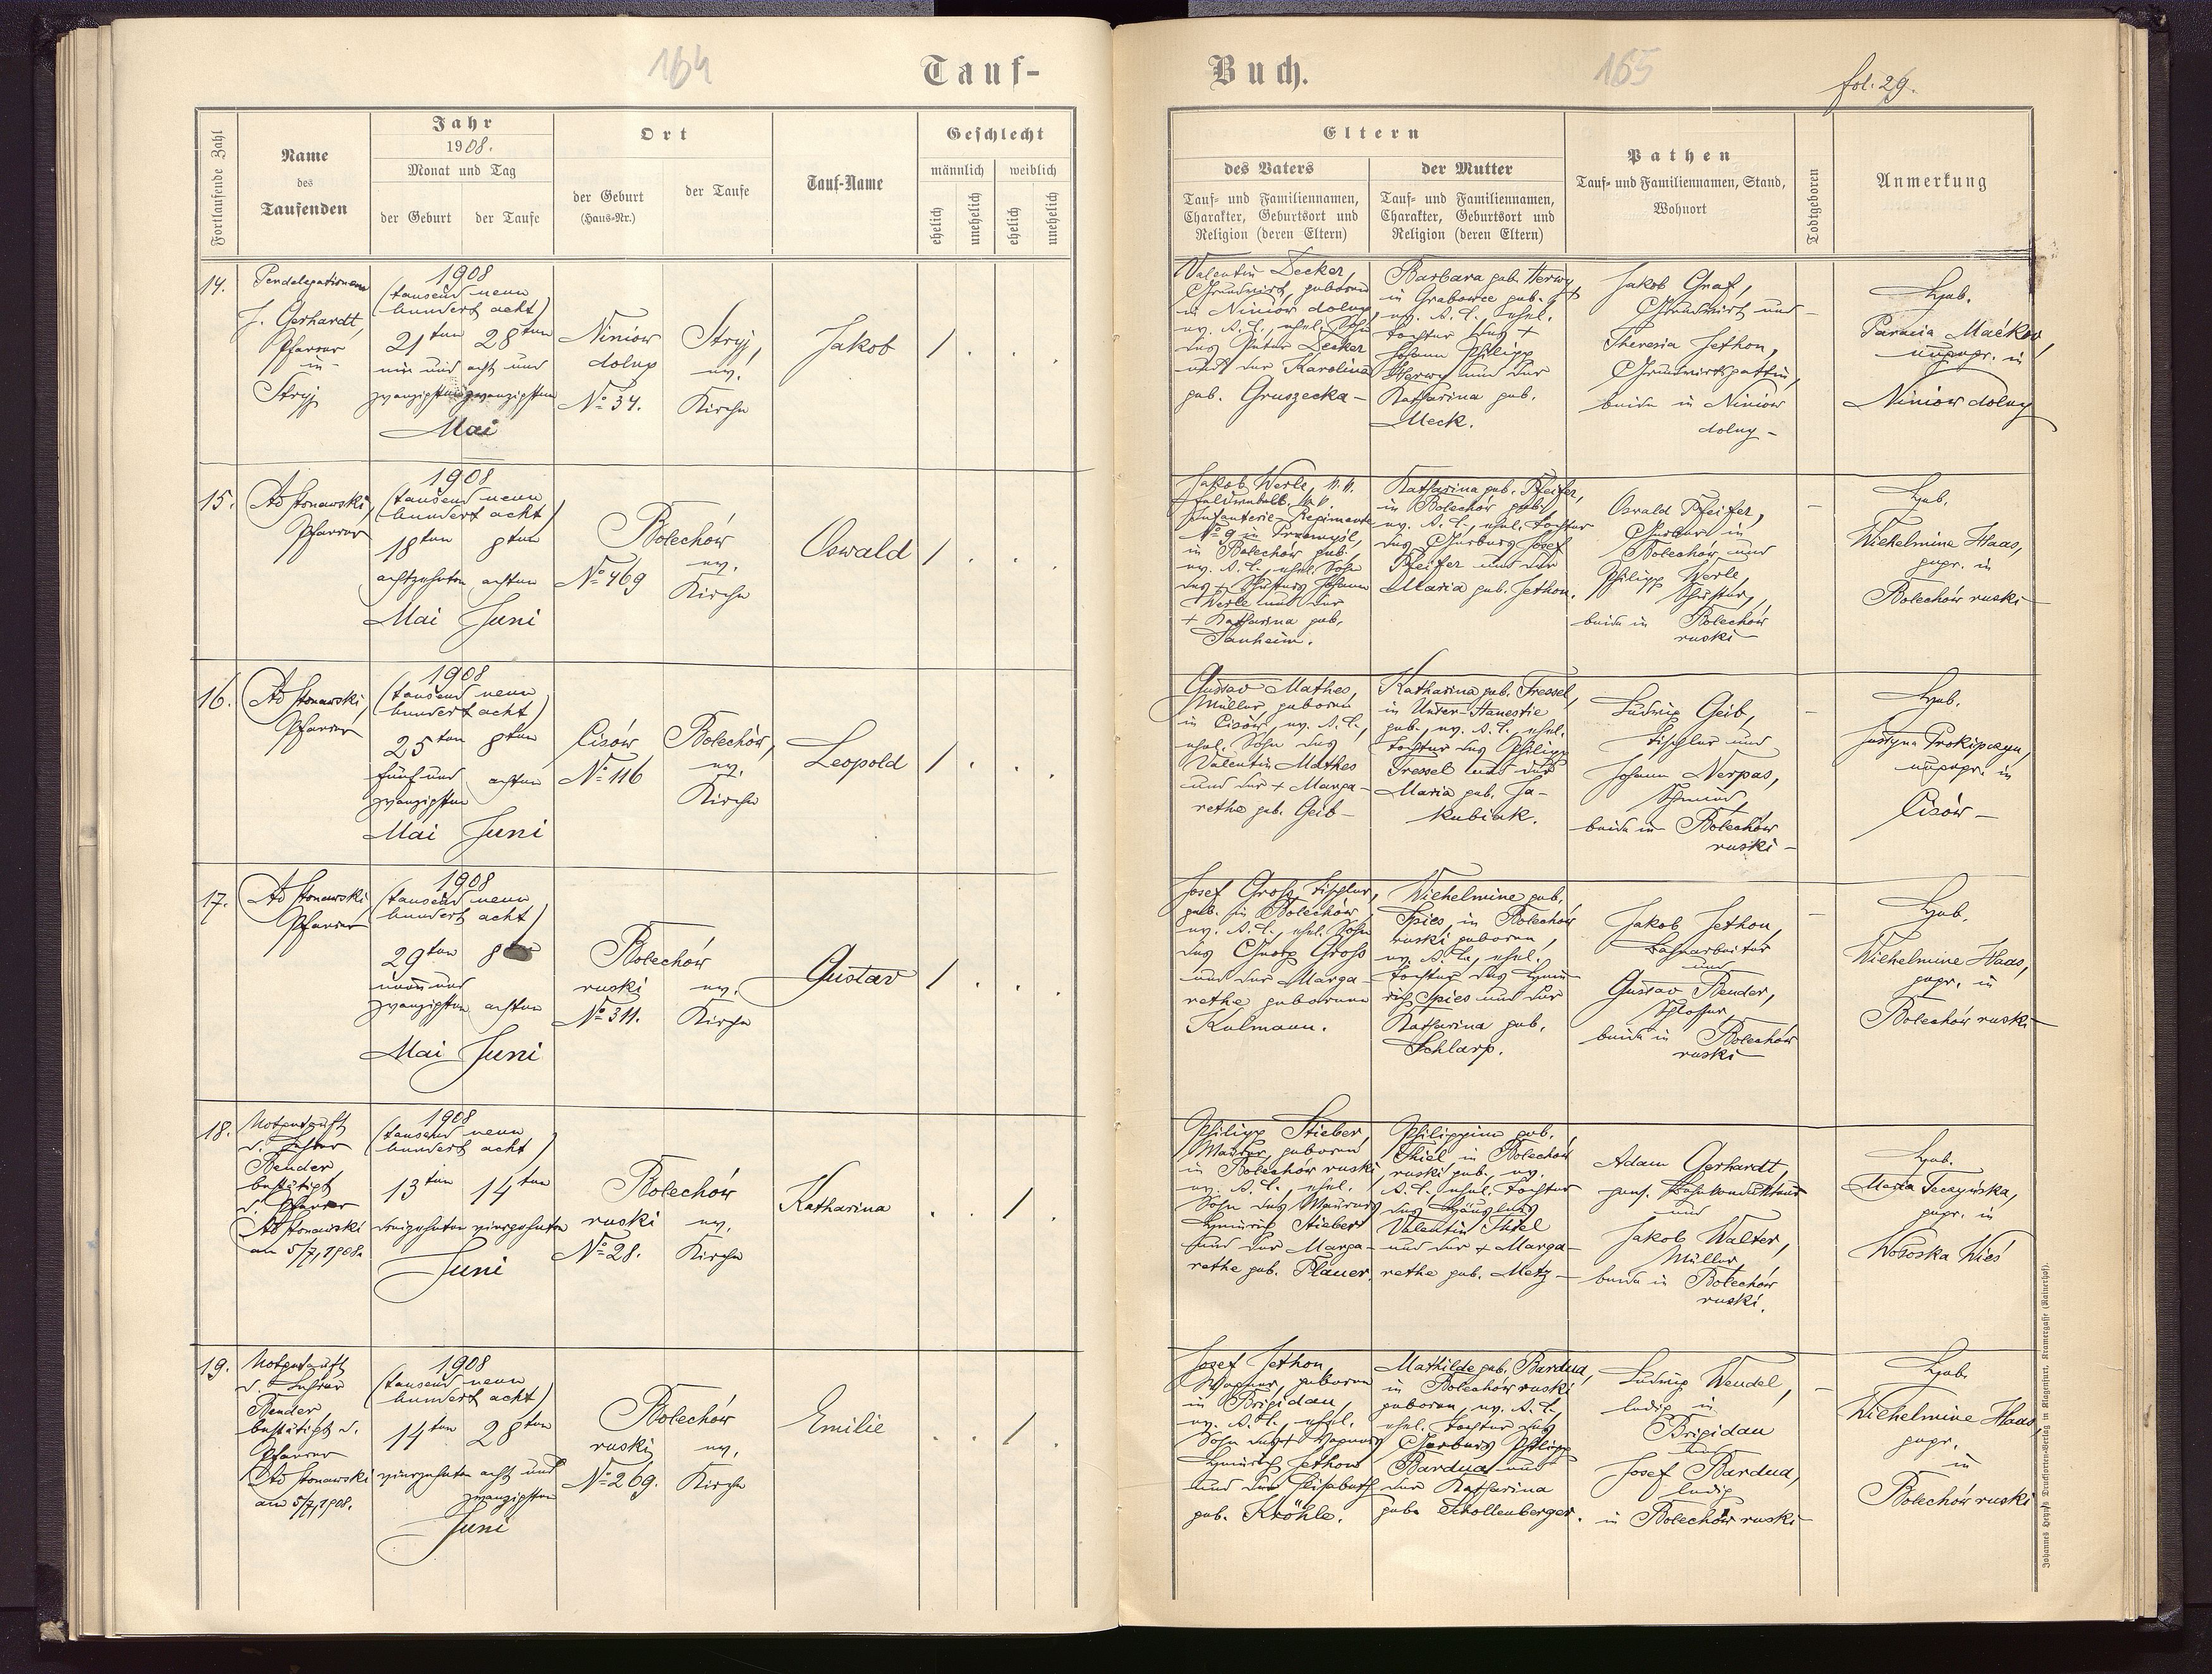 164
Tauf-
Fortlaufende Zahl
Name
des
Taufenden
Jahr
1908.
Monat und Tag
der Geburt
der Taufe
Ort
der Geburt
(Haus-Nr.)
der Taufe
Tauf-Name
Geschlecht
männlich
weiblich
ehelich
unehelich
ehelich
unehelich
14.
J. Gerhardt,
Pfarrer
in
Stryj
1908
(tausend neun
hundert acht)
21ten 28ten
ein und acht und
zwanzigsten zwanzigsten
Mai
Niniów
dolny
No 34.
Stryj,
ev.
Kirche
Jakob
/ . . .
15.
Ad Honowski,
Pfarrer
1908
(tausend neun
hundert acht)
18ten 8ten
achtzehnten achten
Mai Juni
Bolechów
No 469
ev.
Kirche
Oswald
/ . . .
16.
Pfarrer
1908
(tausend neun
hundert acht)
25ten 8ten
fünf und
zwanzigsten achten
Mai Juni
Cisów
No 116
Bolechów,
ev.
Kirche
Leopold
/ . . .
17.
Pfarrer
1908
(tausend neun
hundert acht)
29ten 8
neun und
zwanzigsten achten
Mai Juni
Bolechów
ruski ev.
No 311. Kirche
Gustav
/ . . .
18.
Notgetauft
d. Lehrer
Bender,
bestätigt
d. Pfarrer
am 5/7, 1908.
1908
(tausend neun
hundert acht)
13ten 14ten
dreizehnten vierzehnten
Juni
Bolechów
ruski ev.
No 28. Kirche
Katharina
. . / .
19.
Notgetauft
d. Lehrer
Bender,
bestätigt d.
Pfarrer
am 5/7, 1908.
1908
(tausend neun
hundert acht)
14ten 28ten
vierzehnten acht und
zwanzigsten
Juni
Bolechów
ruski ev.
No 269. Kirche
Emilie
. . / .
Buch.
165
fol. 29.
Eltern
des Vaters
Tauf- und Familiennamen,
Charakter, Geburtsort und
Religion (deren Eltern)
der Mutter
Tauf- und Familiennamen,
Charakter, Geburtsort und
Religion (deren Eltern)
Pathen
Tauf- und Familiennamen, Stand,
Wohnort
Todtgeboren
Anmerkung
Valentin Decker,
Grundwirt, geboren
in Niniów dolny,
ev. A. C., ehel. Sohn
des Peter Decker
und der Karolina
geb. Gruszecka -
Barbara geb. Herwy,
in Grabowce geb.,
ev. A. C., ehel.
Tochter des +
Johann Philipp
Herwy und der
Katharina geb.
Meck.
Jakob Graf,
Grundwirt und
Theresia Jethon,
Grundwirtsgattin,
beide in Niniów
dolny -
Heb.
Parania Maćkov,
ungepr. in
Niniow dolny
Jakob Werle, k. k.
Infanterie-Regiments
No 9 in Przemysl,
in Bolechów geb.,
ev. A. C., ehel. Sohn
des + Schusters Johann
Werle und der
+ Katharina geb.
Tanheim.
Katharina geb. Pfeifer,
in Bolechów geb.,
ev. A. C., ehel. Tochter
des Gerbers Josef
Pfeifer und der
Maria geb. Jethon.
Oswald Pfeifer,
Gerber in
Bolechów und
Philipp Werle,
Schuster,
beide in Bolechów
ruski
Heb.
Wilhelmine Haas,
gepr. in
Bolechów ruski
Gustav Mathes,
Müller, geboren
in Cisów, ev. A. C.,
ehel. Sohn des
Valentin Mathes
und der + Marga-
retha geb. Geib -
Katharina geb. Tressel,
in Unter-Stanestie
geb., ev. A. C., ehel.
Tochter des Philipp
Tressel und der
Maria geb. Ja-
kubiak.
Ludwig Geib,
Tischler und
Johann Nerpas,
Schmied,
beide in Bolechów
ruski -
Heb.
Justyna Prokipczyn,
ungepr. in
Cisów -
Josef Gross, Tischler,
geb. in Bolechów,
ev. A. C., ehel. Sohn
des Georg Gross
und der Marga-
rethe geborene
Kulmann.
Wilhelmine geb.
Spies, in Bolechów
ruski geboren,
ev. A. C., ehel.
Tochter des Hein-
rich Spies und der
Katharina geb.
Schlarp.
Jakob Jethon,
Bahnarbeiter
und
Gustav Bender,
Schlosser,
beide in Bolechów
ruski
Heb.
Wilhelmine Haas,
gepr. in
Bolechów ruski
Philipp Stieber,
Maurer, geboren
in Bolechów ruski,
ev. A. C., ehel.
Sohn des Maurers
Heinrich Stieber
und der Marga-
rethe geb. Plauer.
Philippine geb.
Thiel in Bolechów
ruski geb., ev.
A. C. ehel. Tochter
des Häuslers
Valentin Thiel
und der + Marga-
rethe geb. Metz -
Adam Gerhardt,
pens. Bahnkondukteur
und
Jakob Walter,
Müller,
beide in Bolechów
ruski.
Heb.
Maria Teczyńska,
gepr. in
Wołoska Wieś
Josef Jethon,
Wagner, geboren
in Brigidau,
ev. A. H., ehel.
Sohn des + Wagners
Heinrich Jethon
und der Elisabeth
geb. Kröhle.
Mathilde geb. Bardua,
in Bolechów ruski
geboren, ev. A. C.,
ehel. Tochter des
Gerbers Philipp
Bardua und
der Katharina
geb. Schollenberger.
Ludwig Wendel,
ledig in
Brigidau
und
Josef Bardua,
ledig
in Bolechów ruski -
Heb.
Wilhelmine Haas,
gepr.
in
Bolechów ruski
Johannes Heyn's Druckforten-Verlag in Klagenfurt, Kramergasse (Rainerhof).